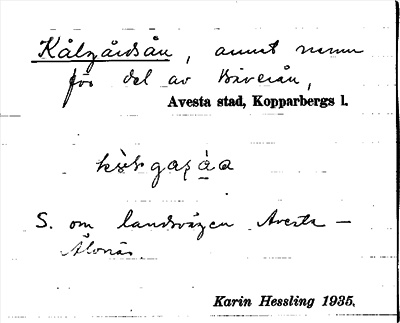 Kålgårdsån, annat namn
för del av Bäverån,
Avesta stad, Kopparbergs l.
S. om landsvägen Avesta –
Karin Hessling 1935.